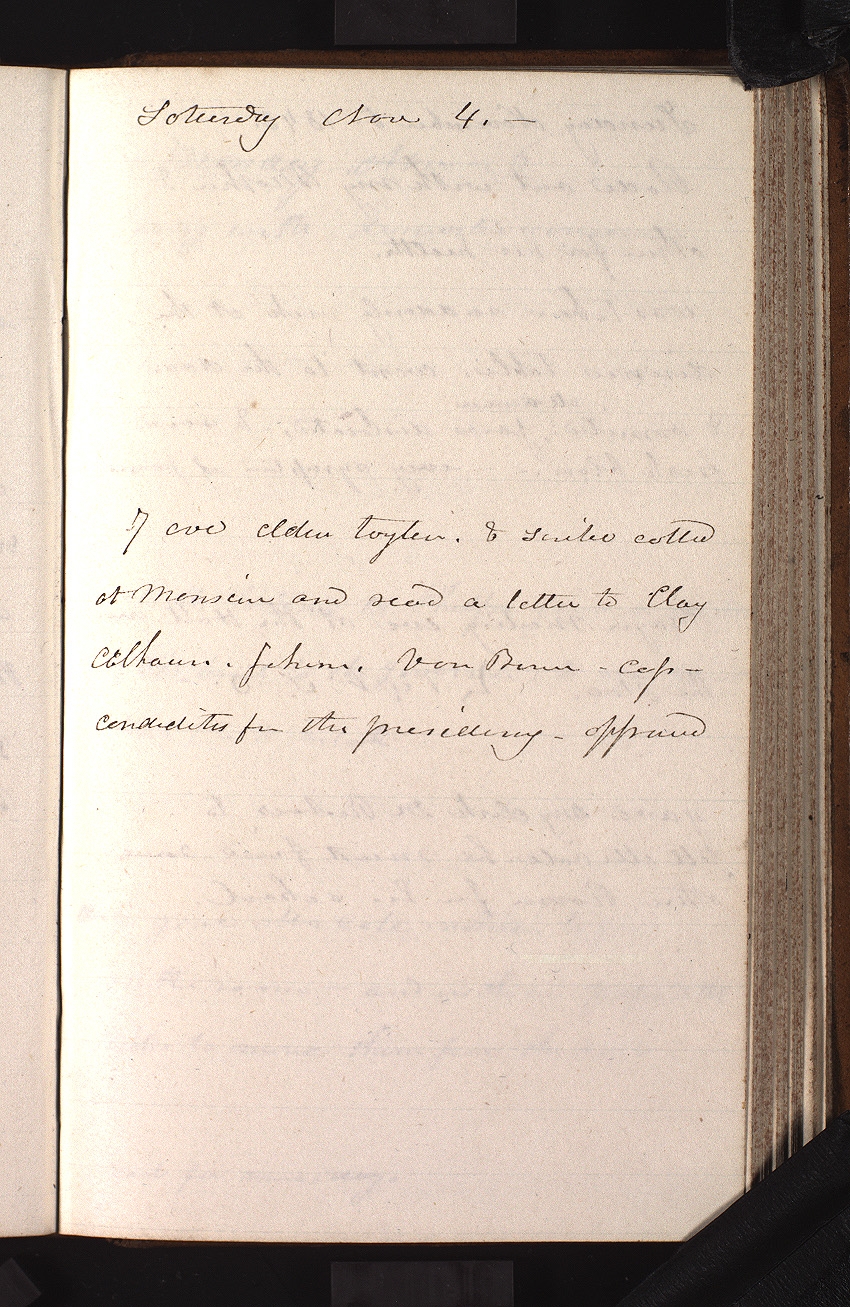 Saturday Nov 4. —
7 eve elder Taylor. & scribe called
at Mansion and read a letter to Clay
Calhoun. Johnson. Van Buren - Cass —
candidates for the presidency - approved